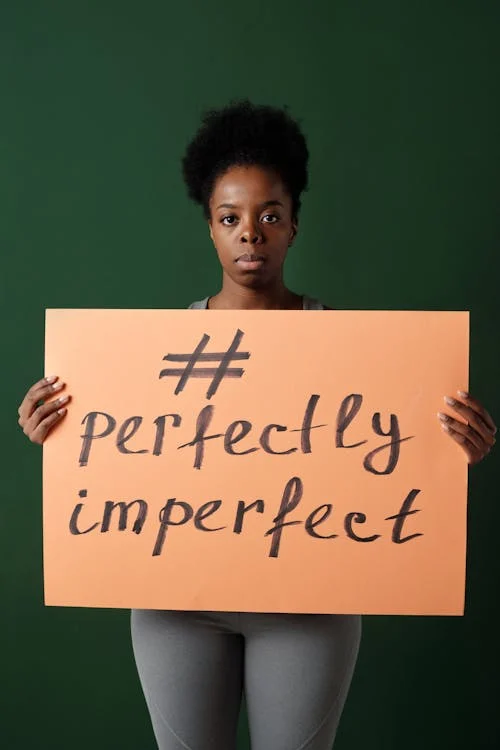 #
perfectly
imperfect